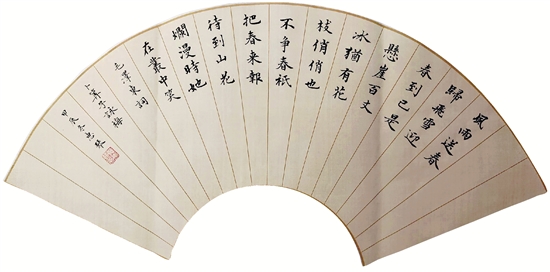 風雨送春
歸飛雪迎
春到已是
懸崖百丈
冰猶有花
枝俏俏也
不争春祇
把春来報
待到山花
爛漫時她
在叢中笑
毛澤東詞
卜算子詠梅
甲辰冬